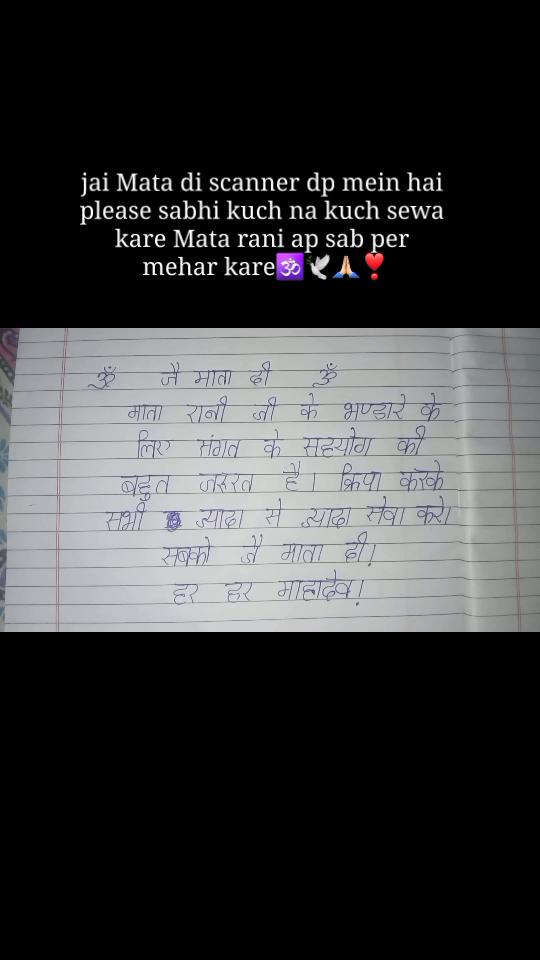 jai Mata di scanner dp mein hai
please sabhi kuch na kuch sewa
kare Mata rani ap sab per
mehar kare🕉️🕊️🙏🏻❣️
ॐ जै माता दी ॐ
माता रानी जी के भण्डारे के
लिए संगत के सहयोग की
बहुत जरुरत है। क्रिपा करके
सभी ज्यादा से ज्यादा सेवा करो।
सबको जै माता दी।
हर हर माहादेव।